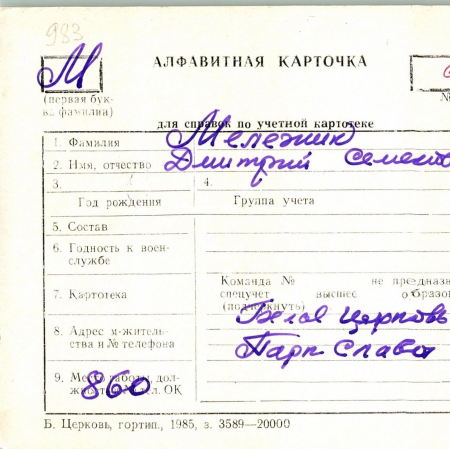 983
М
АЛФАВИТНАЯ КАРТОЧКА
(первая бук-
ва фамилии)
№
для справок по учетной картотеке
1. Фамилия Мележик
2. Имя, отчество Дмитрий Семено
3.
4.
Год рождения
Группа учета
5. Состав
6. Годность к воен-
службе
7. Картотека
Команда № не предназн
спецучет высшее образов
(подчеркнуть)
Белая Церковь
8. Адрес м-жительст-
ва и № телефона
Парк Слава
9. Место работы, дол-
860
Б. Церковь, гортип., 1985, з. 3589—20000